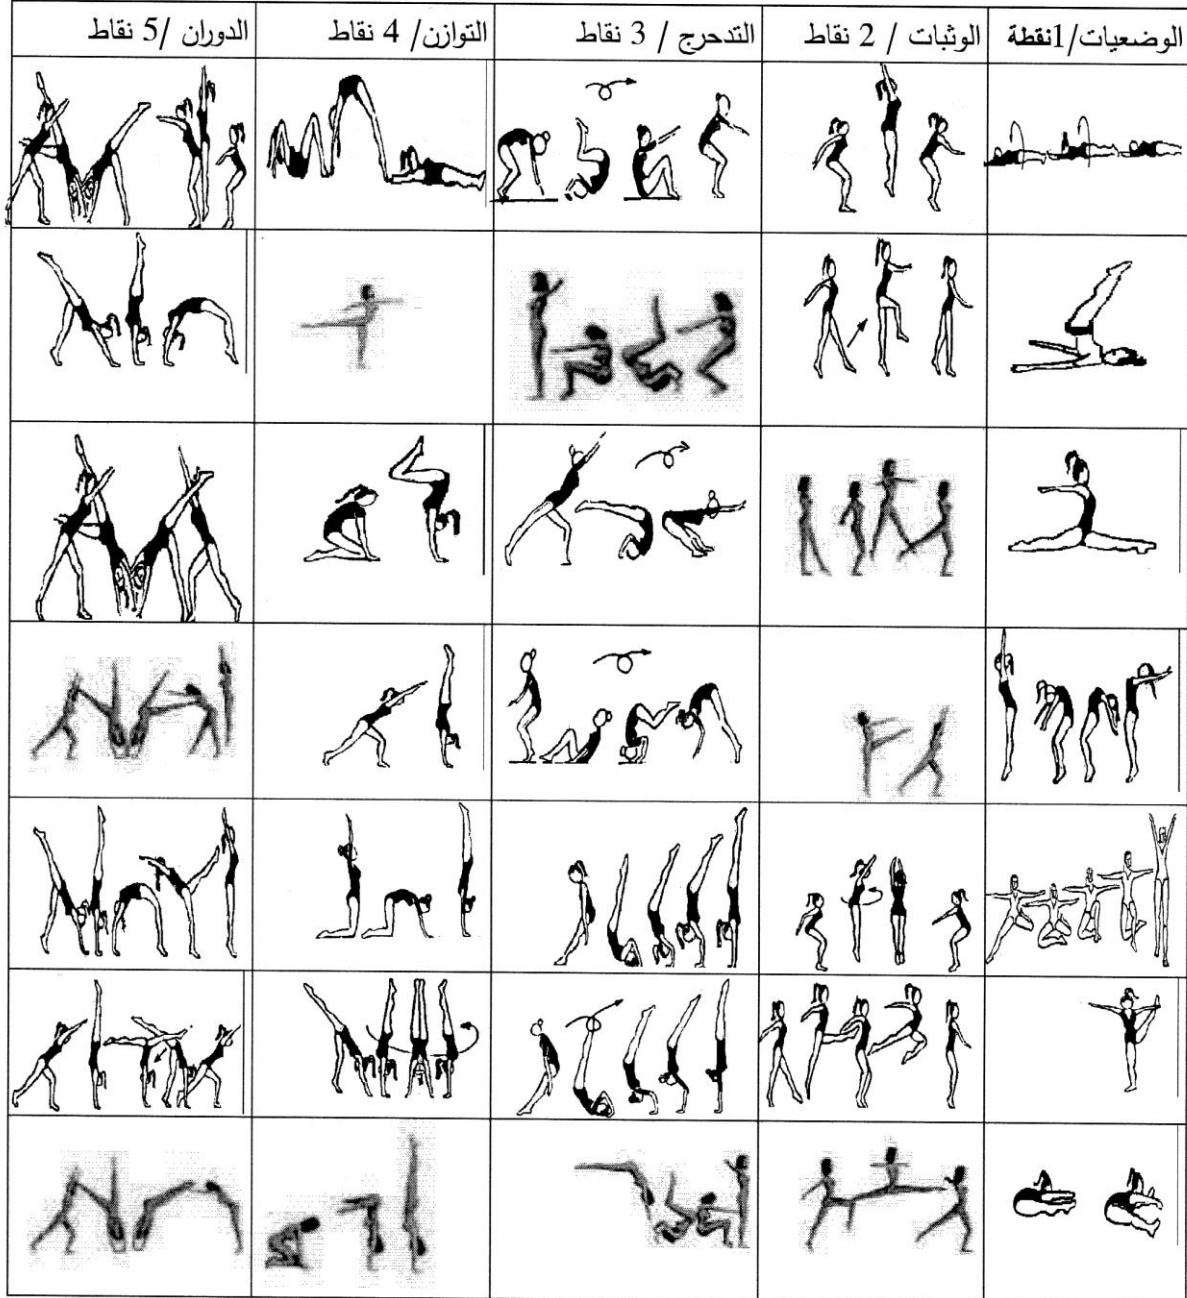 الوضعيات/1نقطة
الوثبات / 2 نقاط
التدحرج / 3 نقاط
التوازن/ 4 نقاط
الدوران /5 نقاط